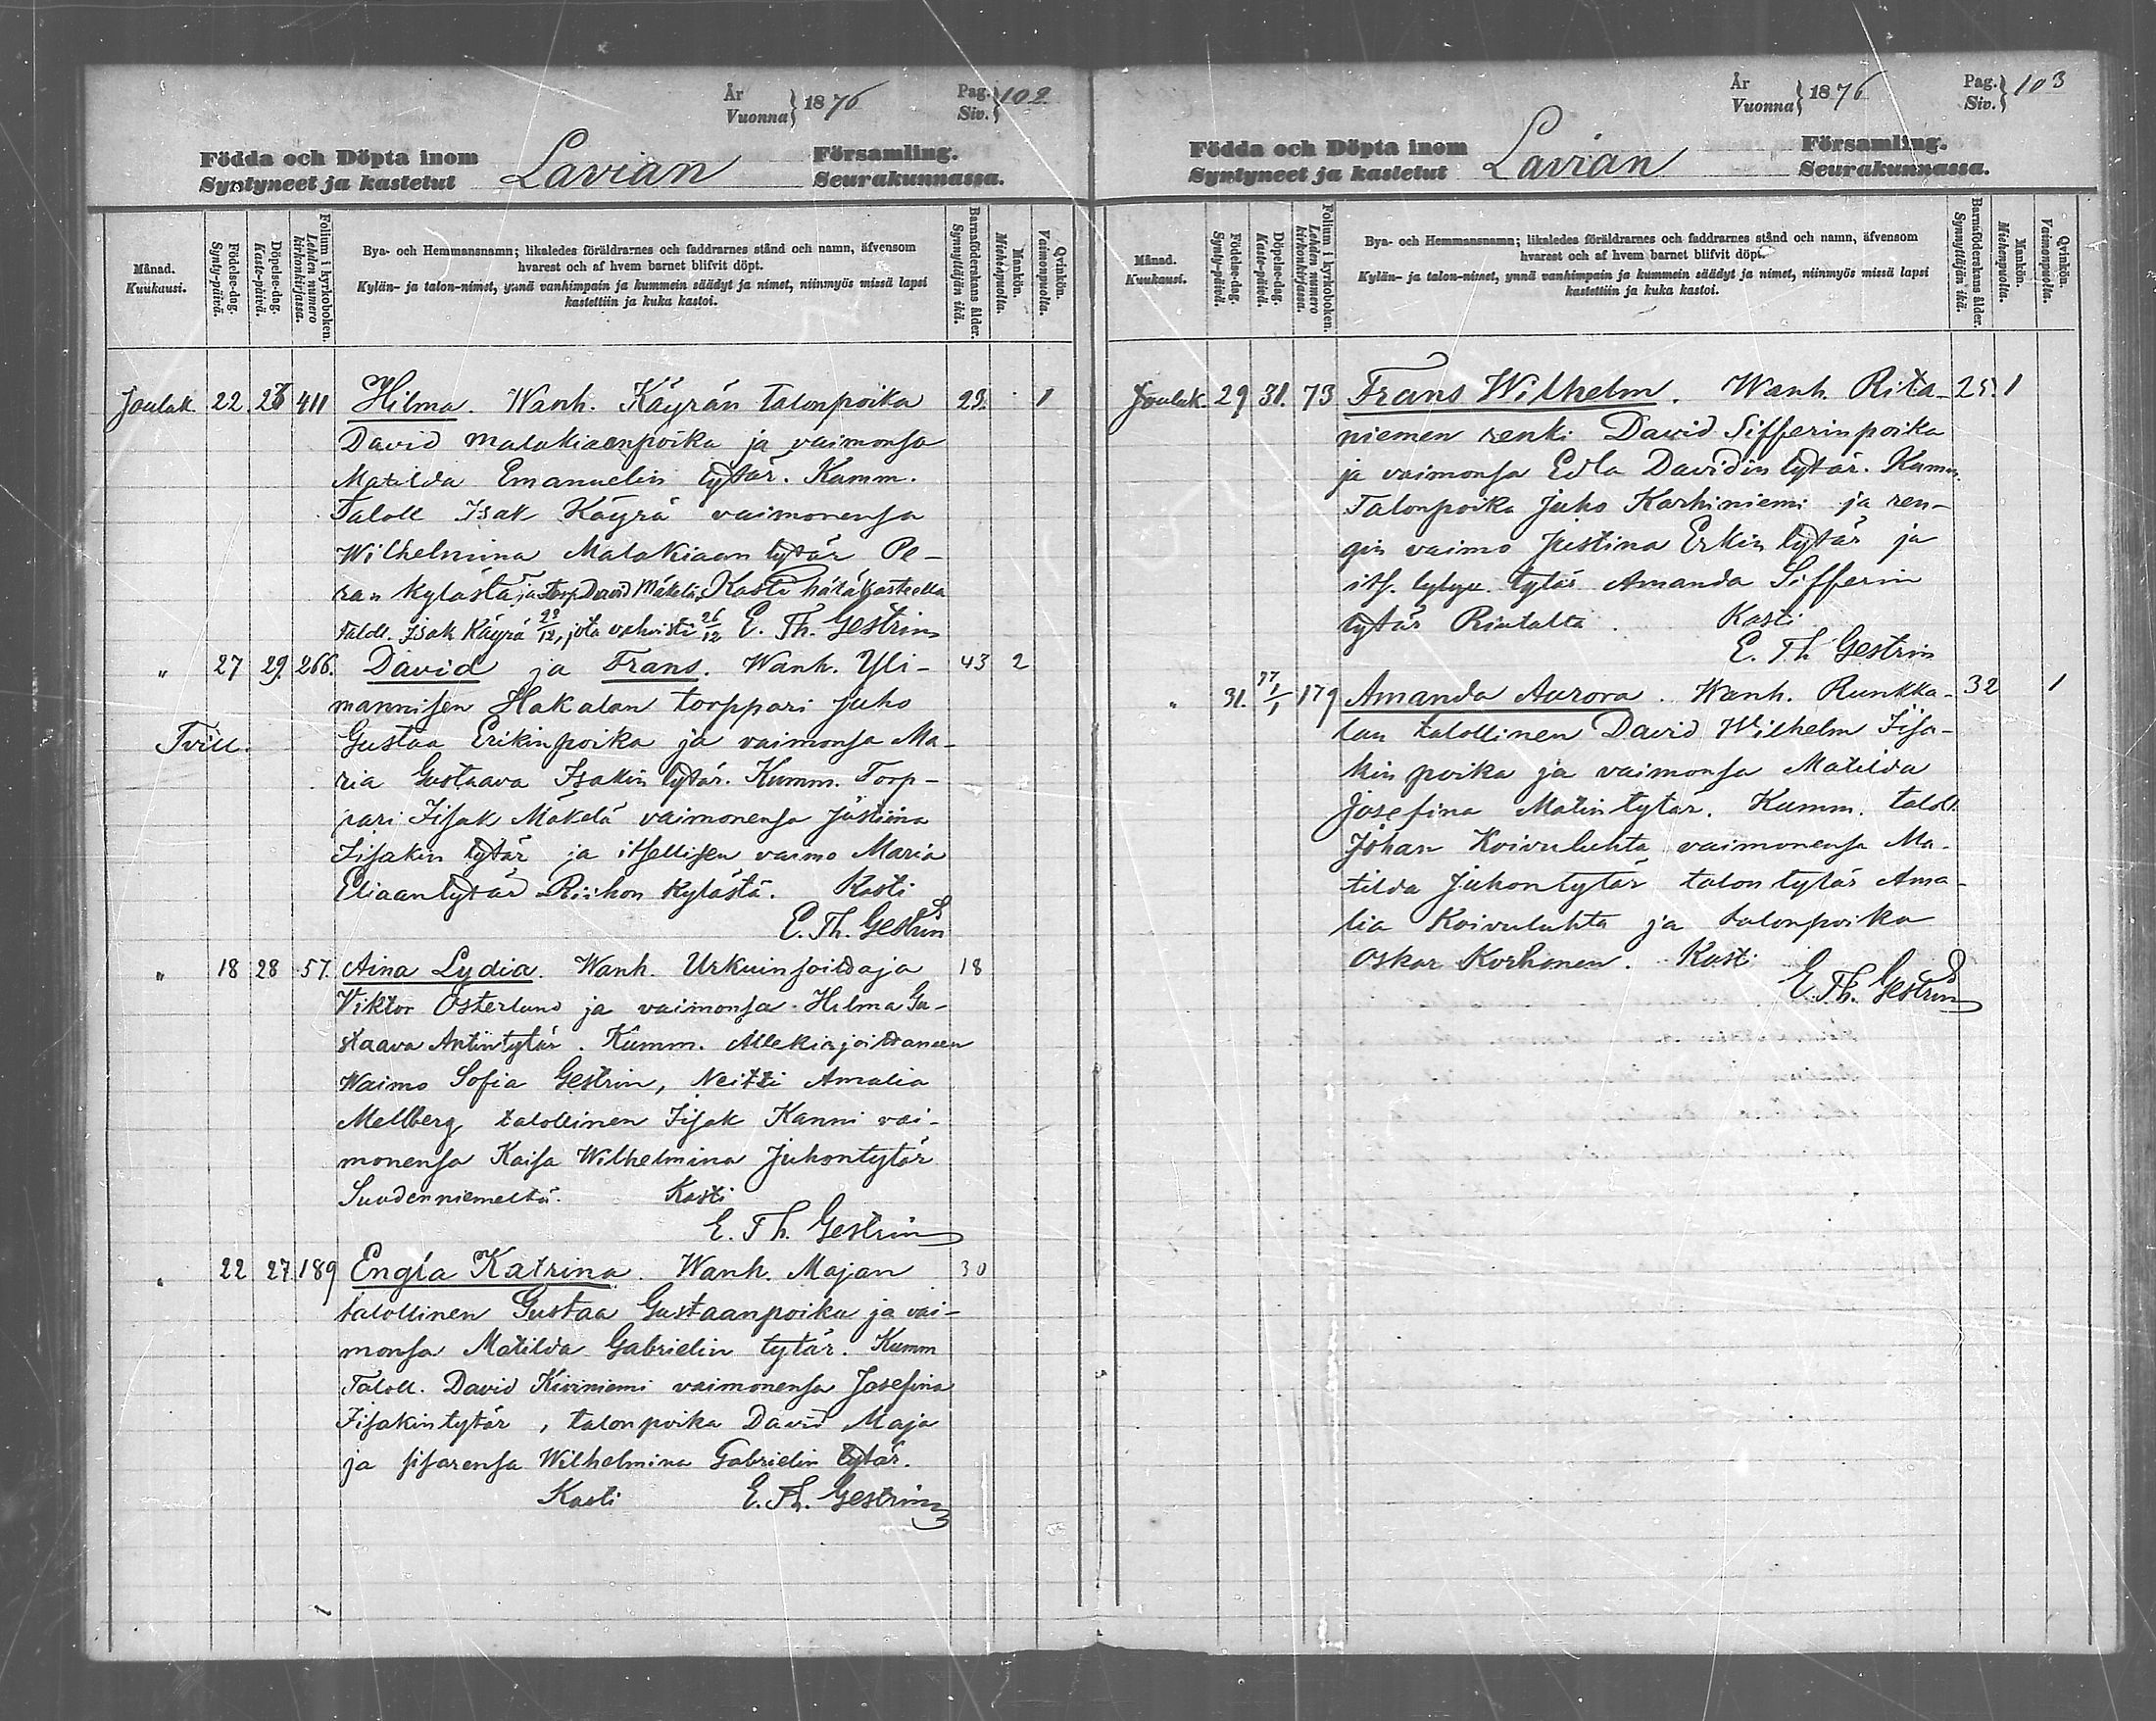 År
Vuonna } 1876
Pag.
Siv. } 102
Födda och Döpta inom
Syntyneet ja kastetut
Lavian
Församling.
Seurakunnassa.
Månad.
Kuukausi.
Födelse-dag.
Synty-päivä.
Döpelse-dag.
Kaste-päivä.
Folium i kyrkoboken.
Lehden numero kirkonkirjassa.
Bya- och Hemmansnamn; likaledes föräldrarnes och faddrarnes stånd och namn, äfvensom
hvarest och af hvem barnet blifvit döpt.
Kylän- ja talon-nimet, ynnä vanhimpain ja kummein säädyt ja nimet, niinmyös missä lapsi
kastettiin ja kuka kastoi.
Barnaföderskans ålder.
Synnyttäjän ikä.
Mankön.
Miehenpuolta.
Qvinkön.
Vaimonpuolta.
Joulak. 22 411 Hilma. Wanh. Käyrän talonpoika 23. 1
David Malakiaanpoika ja vaimonsa
Matilda Emanuelin tytär. Kumm.
Taloll Isak Käyrä vaimonensa
Wilhelmina Malakiaan tytär Pe-
ran kylästä ja Torp David Mäkelä. Kasti hätäkasteella
Taloll. Isak Käyrä 22/12, jota vahvisti 26/12 E. Th. Gestrin
" 27 29. 266. David ja Frans. Wanh. Yli- 43 2
mannisen Hakalan torppari Juho
Tvill. Gustaa Erikinpoika ja vaimonsa Ma-
ria Gustaava Isakin tytär. Kumm. Torp-
pari Iisak Mäkelä vaimonensa Justiina
Iisakin tytär ja itsellisen vaimo Maria
Eliaantytär Riihon kylästä. Kasti
E. Th. Gestrin
" 18 28 57. Aina Lydia. Wanh. Urkuinsoittaja 18
Viktor Österlund ja vaimonsa Hilma Gu-
staava Antintytär. Kumm. Allekirjoittaneen
Waimo Sofia Gestrin, Neitsi Amalia
Mellberg talollinen Iisak Kanni vai-
monensa Kaisa Wilhelmina Juhontytär
Suodenniemeltä. Kasti
E. Th. Gestrin
" 22 27. 189 Engla Katrina. Wanh. Majan 30
talollinen Gustaa Gustaanpoika ja vai-
monsa Matilda Gabrielin tytär. Kumm
Taloll. David Kiviniemi vaimonensa Josefina
Iisakintytär, talonpoika David Maja
ja sisarensa Wilhelmina Gabrielin tytär.
Kasti E. Th. Gestrin
År
Vuonna } 1876
Pag.
Siv. } 103
Födda och Döpta inom
Syntyneet ja kastetut
Lavian
Församling.
Seurakunnassa.
Månad.
Kuukausi.
Födelse-dag.
Synty-päivä.
Döpelse-dag.
Kaste-päivä.
Folium i kyrkoboken.
Lehden numero kirkonkirjassa.
Bya- och Hemmansnamn; likaledes föräldrarnes och faddrarnes stånd och namn, äfvensom
hvarest och af hvem barnet blifvit döpt.
Kylän- ja talon-nimet, ynnä vanhimpain ja kummein säädyt ja nimet, niinmyös missä lapsi
kastettiin ja kuka kastoi.
Barnaföderskans ålder.
Synnyttäjän ikä.
Mankön.
Miehenpuolta.
Qvinkön.
Vaimonpuolta.
Joulak. 29 31. 73 Frans Wilhelm. Wanh. Rita- 25. 1
niemen renki David Sifferinpoika
ja vaimonsa Edla Davidin tytär. Kumm.
Talonpoika Juho Karhiniemi ja ren-
gin vaimo Justina Erkin tytär ja
its. tytär Amanda Sifferin
tytär. Kasti
E. Th. Gestrin
" 31. 77 1/1 179 Amanda Aurora. Wanh. Runkka- 32 1
lan talollinen David Wilhelm Iisa-
kin poika ja vaimonsa Matilda
Josefina Matintytär. Kumm. taloll
Johan Koivuluhta vaimonensa Ma-
tilda Juhontytär talontytär Ama-
lia Koivuluhta ja talonpoika
Oskar Korhonen. Kasti
E. Th. Gestrin